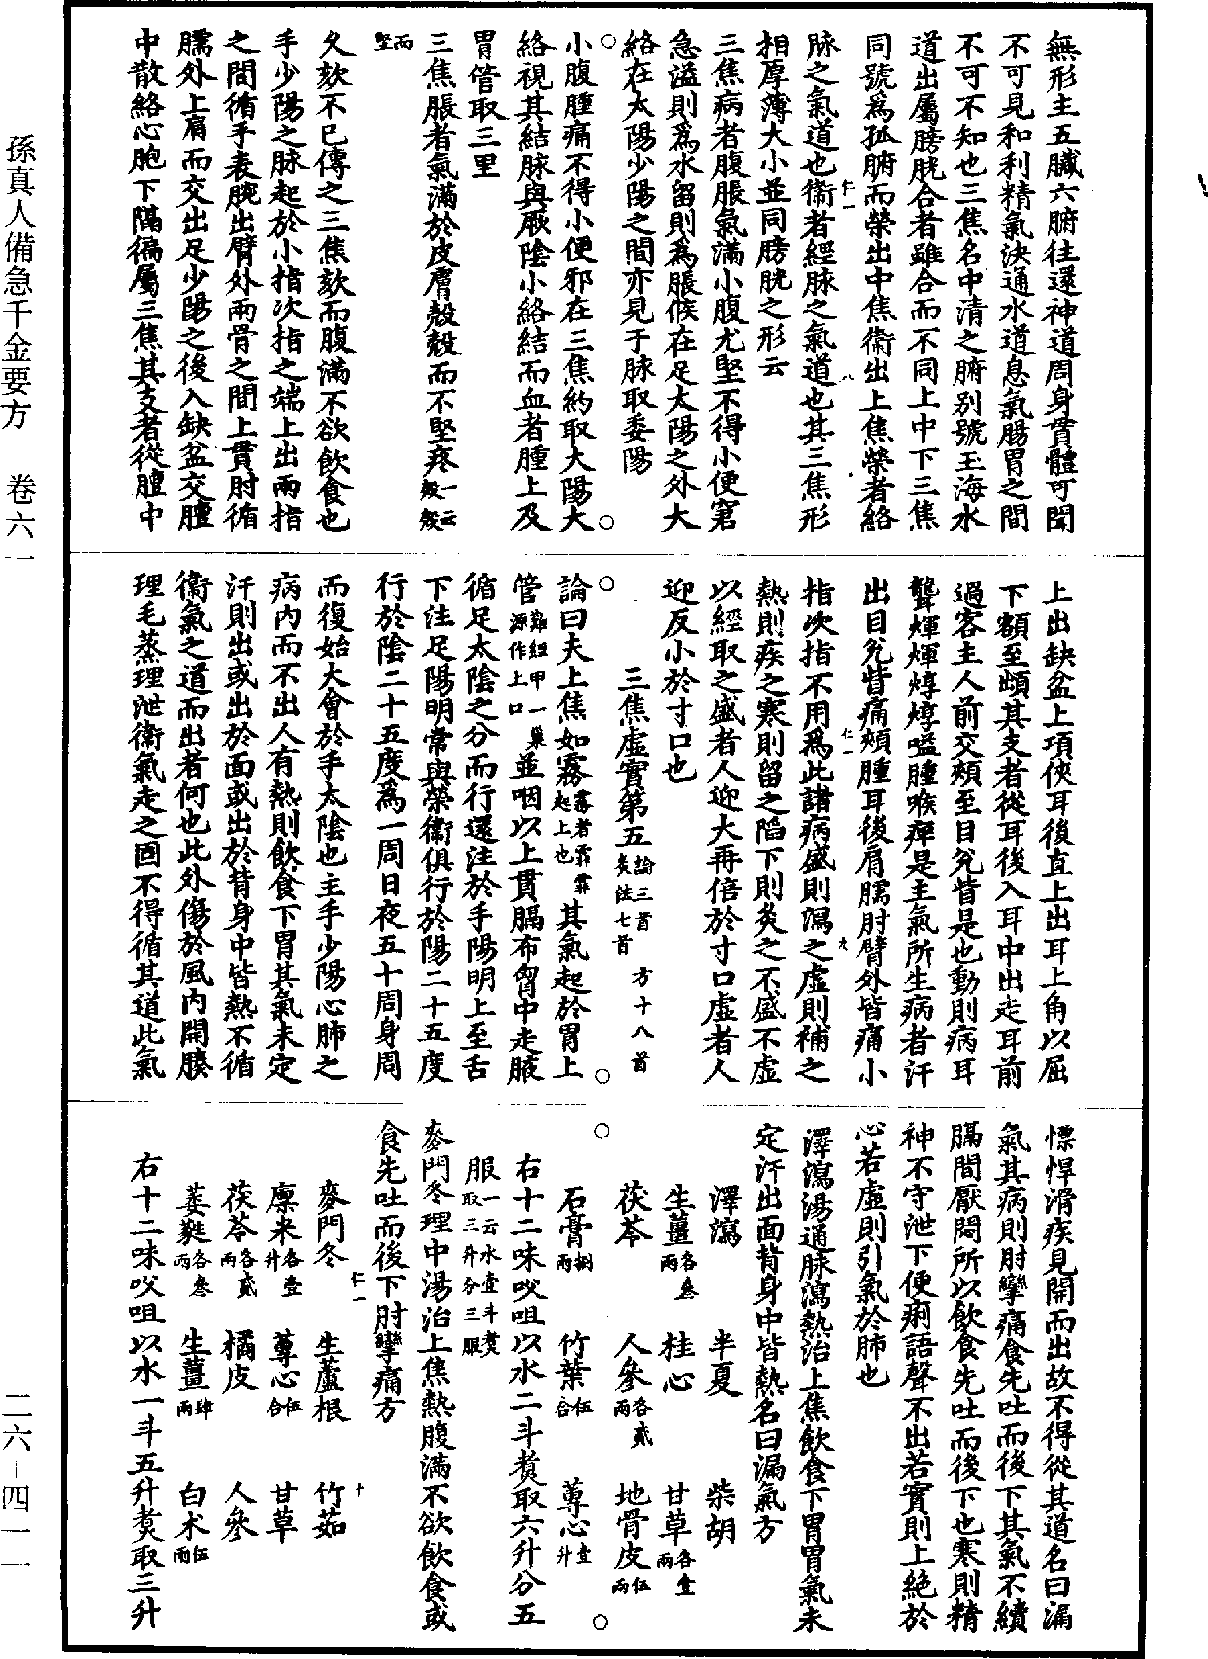 無形主五臟六腑往還神道周身貫體可聞
不可見和利精氣決通水道息氣腸胃之間
不可不知也三焦名中清之腑別號玉海水
道出屬膀胱合者雖合而不同上中下三焦
同號爲孤腑而榮出中焦衞出上焦榮者絡
脉之氣道也衞者經脉之氣道也其三焦形
相厚薄大小並同膀胱之形云
三焦病者腹脹氣滿小腹尤堅不得小便窘
急溢則爲水留則爲脹候在足太陽之外大
絡在太陽少陽之間亦見于脉取委陽
小腹腫痛不得小便邪在三焦約取大陽大
絡視其結脉與厥陰小絡結而血者腫上及
胃管取三里
三焦脹者氣滿於皮膚殼殼而不堅疼一云殼殼而堅
久欬不已傳之三焦欬而腹滿不欲飲食也
手少陽之脉起於小指次指之端上出兩指
之間循手表腕出臂外兩骨之間上貫肘循
臑外上肩而交出足少陽之後入缺盆交膻
中散絡心胞下隔徧屬三焦其支者從膻中
上出缺盆上項俠耳後直上出耳上角以屈
下額至䪼其支者從耳後入耳中出走耳前
過客主人前交頰至目兊眥是也動則病耳
聾煇煇焞焞嗌腫喉痺是主氣所生病者汗
出目兊眥痛頰腫耳後肩臑肘臂外皆痛小
指次指不用爲此諸病盛則瀉之虛則補之
熱則疾之寒則留之陷下則灸之不盛不虛
以經取之盛者人迎大再倍於寸口虛者人
迎反小於寸口也
三焦虛實第五論三首 方十八首 灸法七首
論曰夫上焦如霧霧者霏霏起上也其氣起於胃上
管難經甲一巢源作上口並咽以上貫膈布胷中走腋
循足太陰之分而行還注於手陽明上至舌
下注足陽明常與榮衞俱行於陽二十五度
行於陰二十五度爲一周日夜五十周身周
而復始大會於手太陰也主手少陽心肺之
病内而不出人有熱則飲食下胃其氣未定
汗則出或出於面或出於背身中皆熱不循
衞氣之道而出者何也此外傷於風内開腠
理毛蒸理泄衞氣走之固不得循其道此氣
慓悍滑疾見開而出故不得從其道名曰漏
氣其病則肘攣痛食先吐而後下其氣不續
膈間厭悶所以飲食先吐而後下也寒則精
神不守泄下便痢語聲不出若實則上絕於
心若虛則引氣於肺也
澤瀉湯通脉瀉熱治上焦飲食下胃胃氣未
定汗出面背身中皆熱名曰漏氣方
澤瀉 半夏 柴胡
生薑各叁兩 桂心 甘草各壹兩
茯苓 人參各貳兩 地骨皮伍兩
石膏捌兩 竹葉伍合 蓴心壹升
右十二味㕮咀以水二斗煑取六升分五
服一云水壹斗煑取三升分三服
麥門冬理中湯治上焦熱腹滿不欲飲食或
食先吐而後下肘攣痛方
麥門冬 生蘆根 竹茹
廩米各壹升 蓴心伍合 甘草
茯苓各貳兩 橘皮 人參
萎蕤各叁兩 生薑肆兩 白朮伍兩
右十二味㕮咀以水一斗五升煑取三升
孫真人備急千金要方 卷六一
二六－四一一